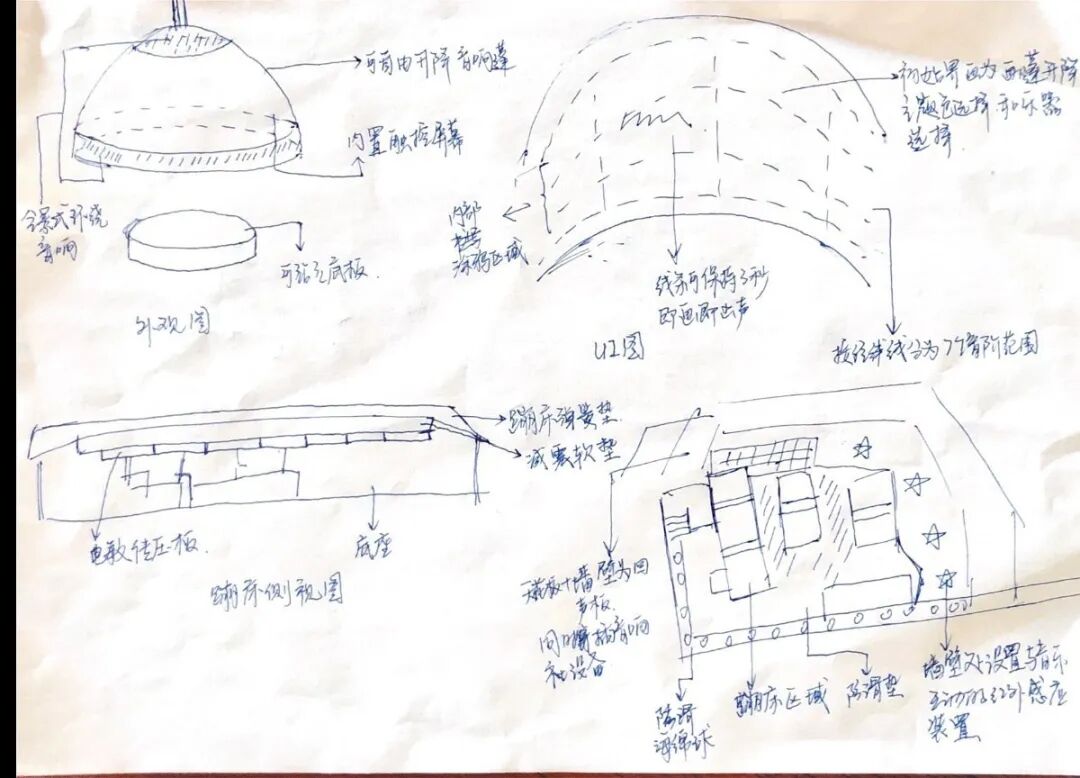 可自由升降音响蓬
内置触控屏幕
全景式环绕
音响
可站立底板.
外观图
初始界面为画蓬升降
主题色选择和乐器
选择.
内部
涂鸦区域
线条可保持3秒
即画即出声
UI图
按经纬线分为7个音阶范围
蹦床弹簧垫.
减震软垫
电敏传压板.
底座
蹦床侧视图
天花板+墙壁为回
声板.
同时
设备
防滑
海绵球
蹦床区域
防滑垫
墙壁处设置与音乐
互动的红外感应
装置